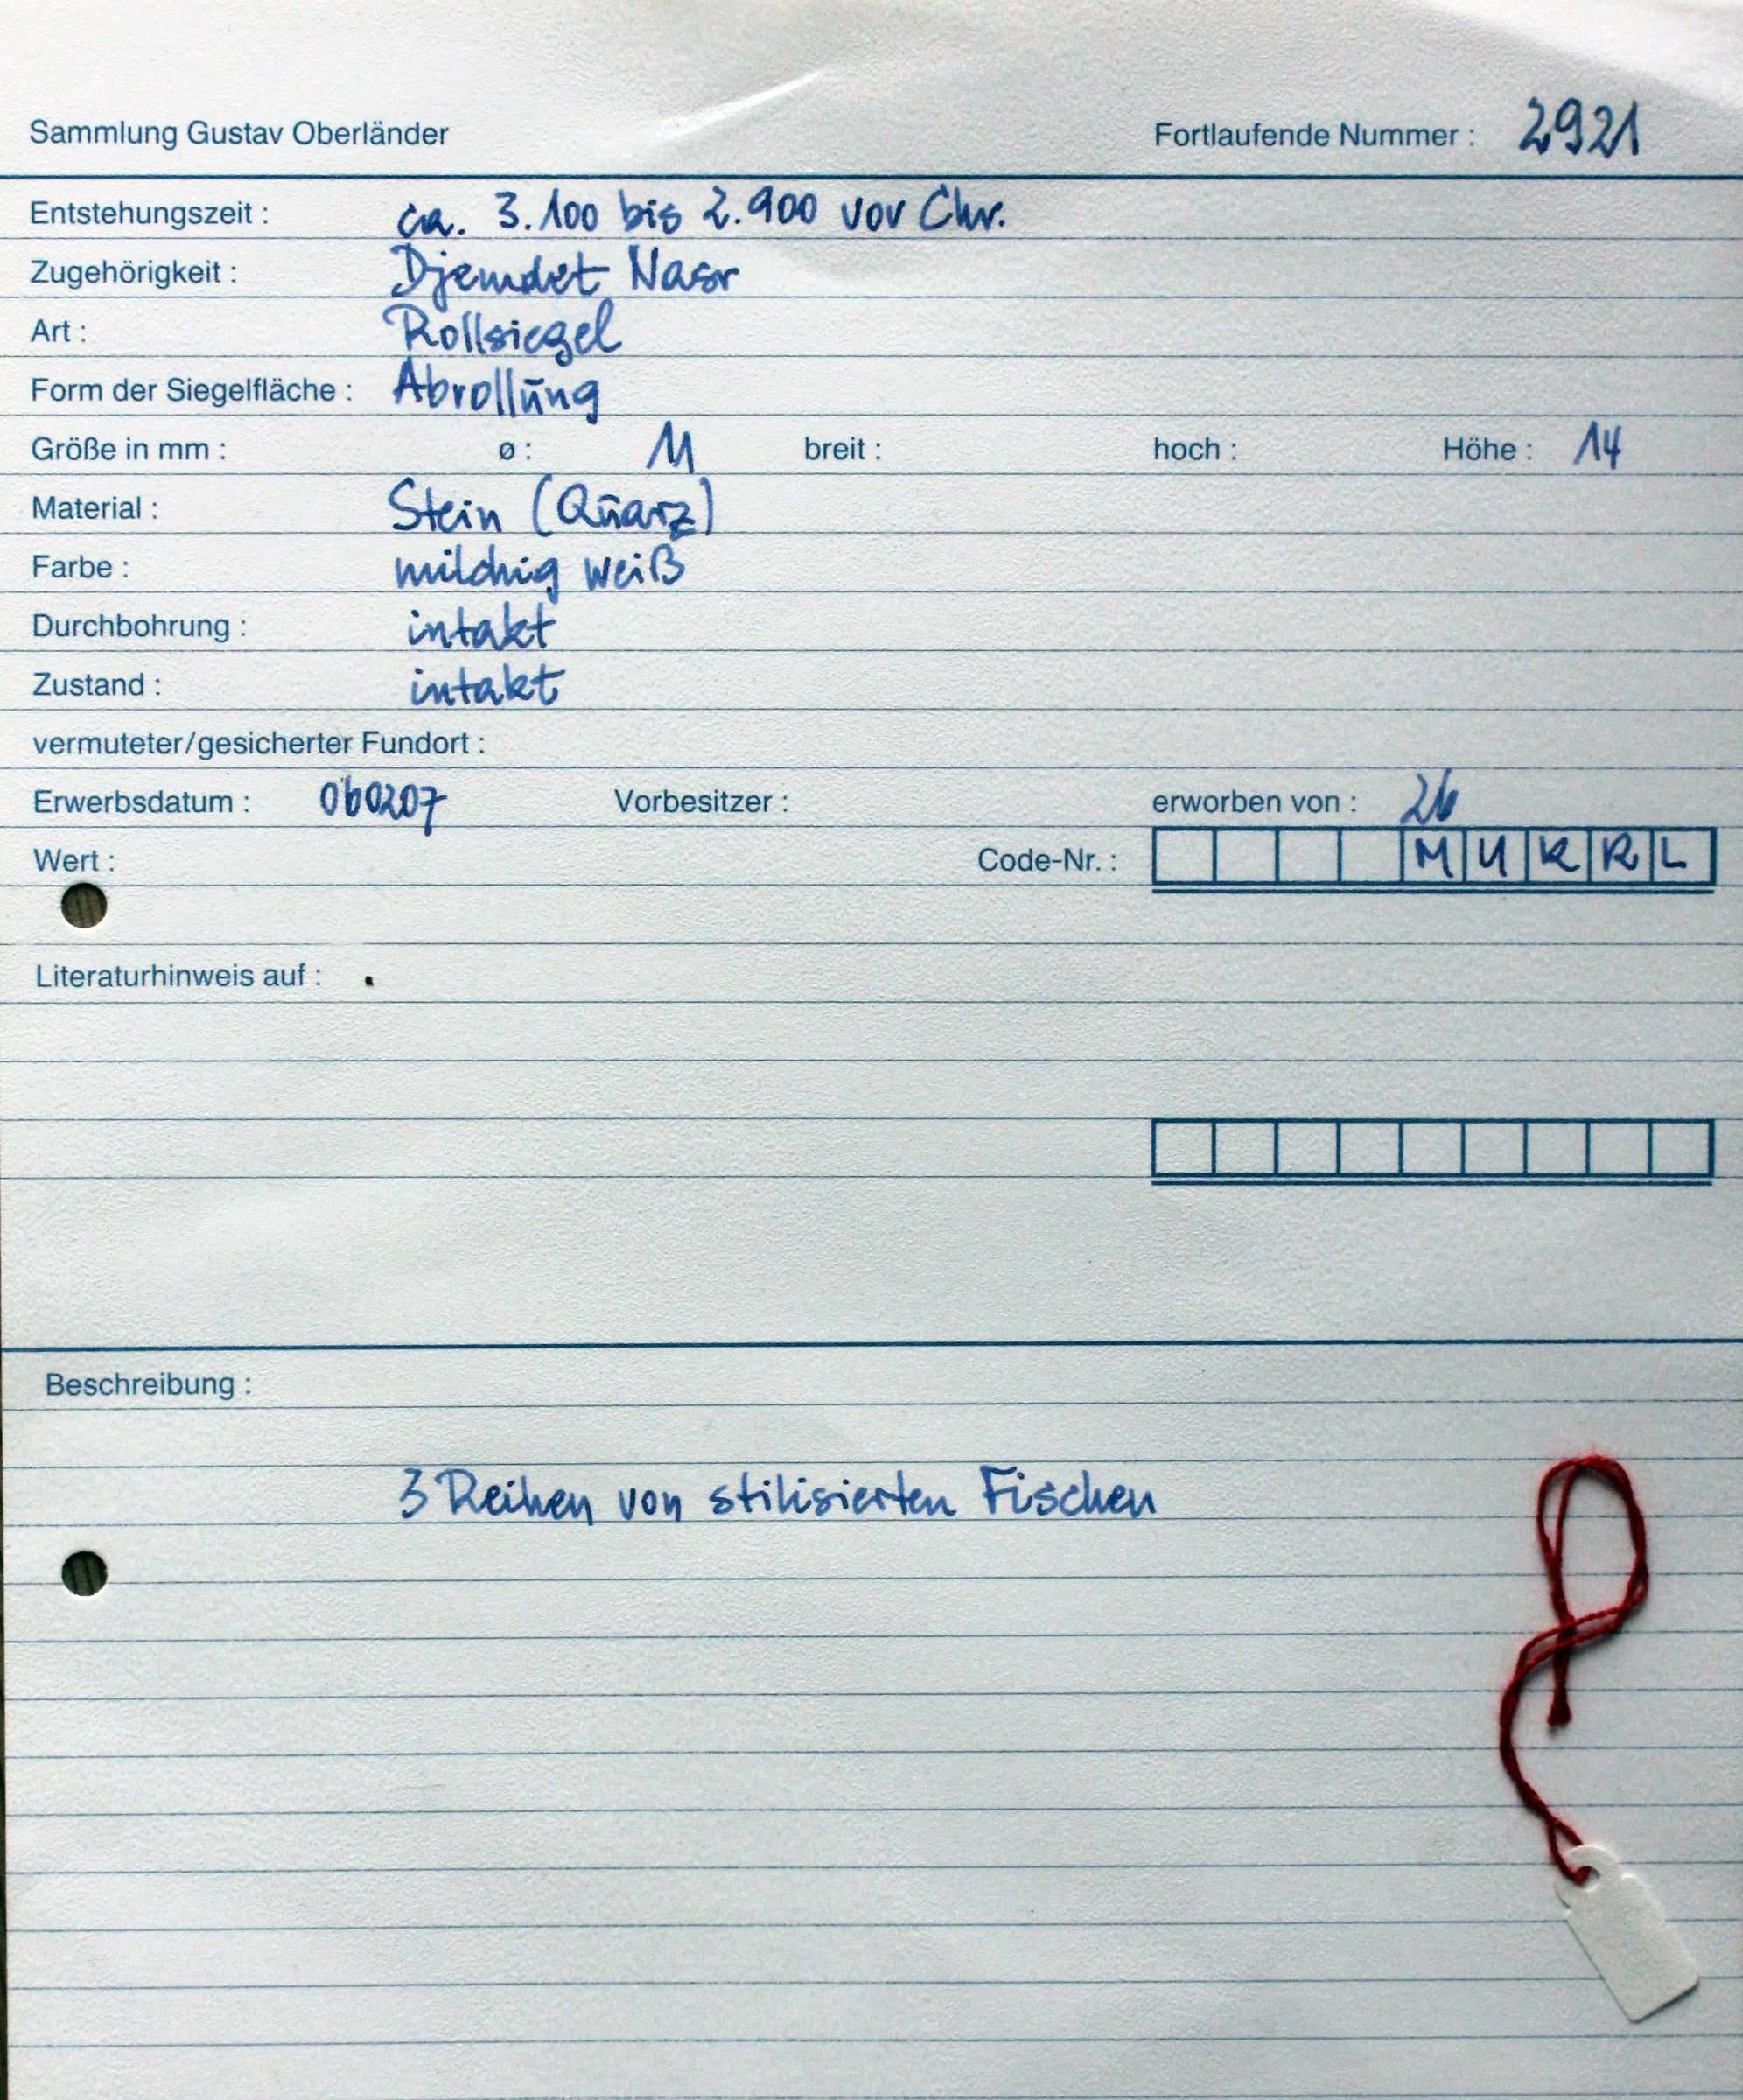 Sammlung Gustav Oberländer Fortlaufende Nummer : 2921
Entstehungszeit : ca. 3.100 bis 2.900 vor Chr.
Zugehörigkeit : Djemdet Nasr
Art : Rollsiegel
Form der Siegelfläche : Abrollung
Größe in mm : ø : 11 breit : hoch : Höhe : 14
Material : Stein (Quarz)
Farbe : milchig weiß
Durchbohrung : intakt
Zustand : intakt
vermuteter/gesicherter Fundort :
Erwerbsdatum : 060207 Vorbesitzer : erworben von : 26
Wert : Code-Nr. : M U K R L
Literaturhinweis auf :
Beschreibung :
3 Reihen von stilisierten Fischen